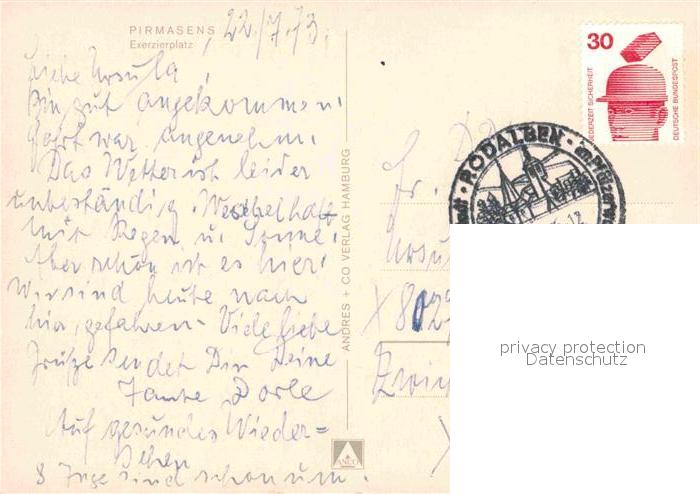 PIRMASENS
Exerzierplatz
22/7.73.
Liebe Ursula,
Bin gut angekommen.
Fahrt war angenehm.
Das Wetter ist leider
unbeständig. Wechelhaft
mit Regen u. Sonne.
Aber schön ist es hier.
Wir sind heute nach
hier gefahren. Viele liebe
Grüße sendet Dir Deine
Tante Dorle
Auf gesundes Wieder=
sehen
8 Tage sind schon um.
ANDRES + CO VERLAG HAMBURG
ANCO
30
JEDERZEIT SICHERHEIT
DEUTSCHE BUNDESPOST
RODALBEN · im Pfälzerw
Fr.
Ursu
X 802
Zwi
privacy protection
Datenschutz